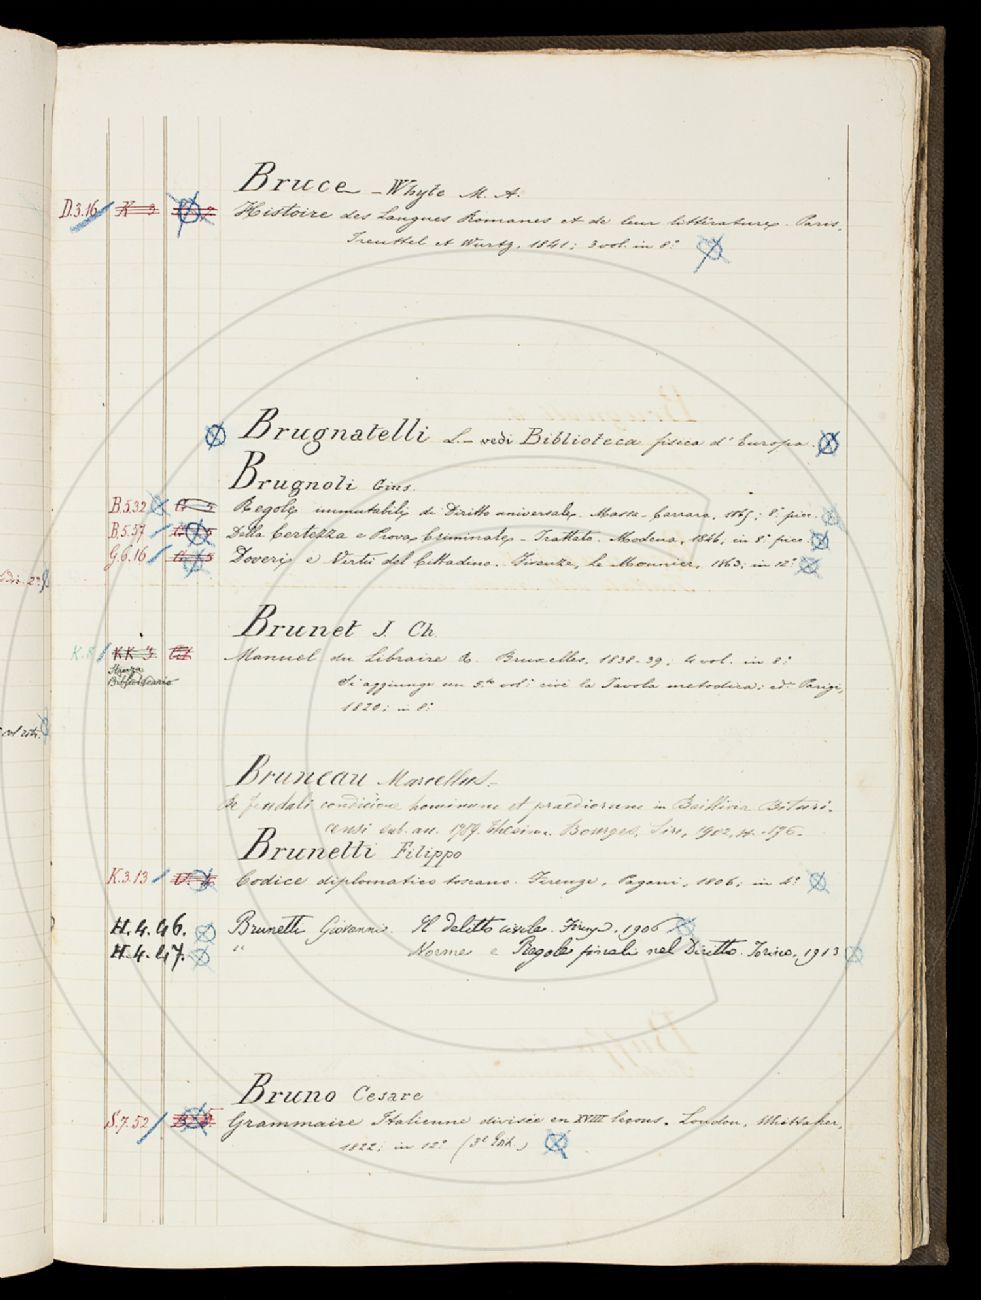 Bruce - Whyte M. A.
D.3.16 Histoire des Langues Romanes et de leur littérature. Paris,
Treuttel et Wurtz. 1841; 3 vol. in 8.°
Brugnatelli L. - vedi Biblioteca fisica d'Europa.
Brugnoli Gius.
B.5.32 Regole immutabili di Diritto universale. Massa-Carrara, 1865; 8.° picc.
B.5.57 Della Certezza e Prova Criminale - Trattato. Modena, 1846, in 8.° picc.
G.6.16 Doveri e Virtù del Cittadino. Firenze, Le Monnier, 1863; in 12.°
Brunet J. Ch.
K.8 Manuel du Libraire &. Bruxelles, 1838-39; 4 vol. in 8.°
Stanza Bibliotecario
Si aggiunge un 5.to vol.° cioè la Tavola metodica; ed.e Parigi,
1820; in 8.°
Bruneau Marcellus -
De feudali condicione hominum et praediorum in Baillivia Bituri-
censi sub. an. Thesim. Bourges, Sire, 1902, 
Brunetti Filippo
K.3.13 Codice diplomatico toscano. Firenze, Pagani, 1806; in 4.°
H.4.46. Brunetti Giovanni Il delitto civile. Firenze, 1906
H.4.47. " Norme e Regole finali nel Diritto. Torino, 1913
Bruno Cesare
S.7.52 Grammaire Italienne divisée en XVIII leçons. London, Whittaker,
1822; in 12.° (3.e Edit.)